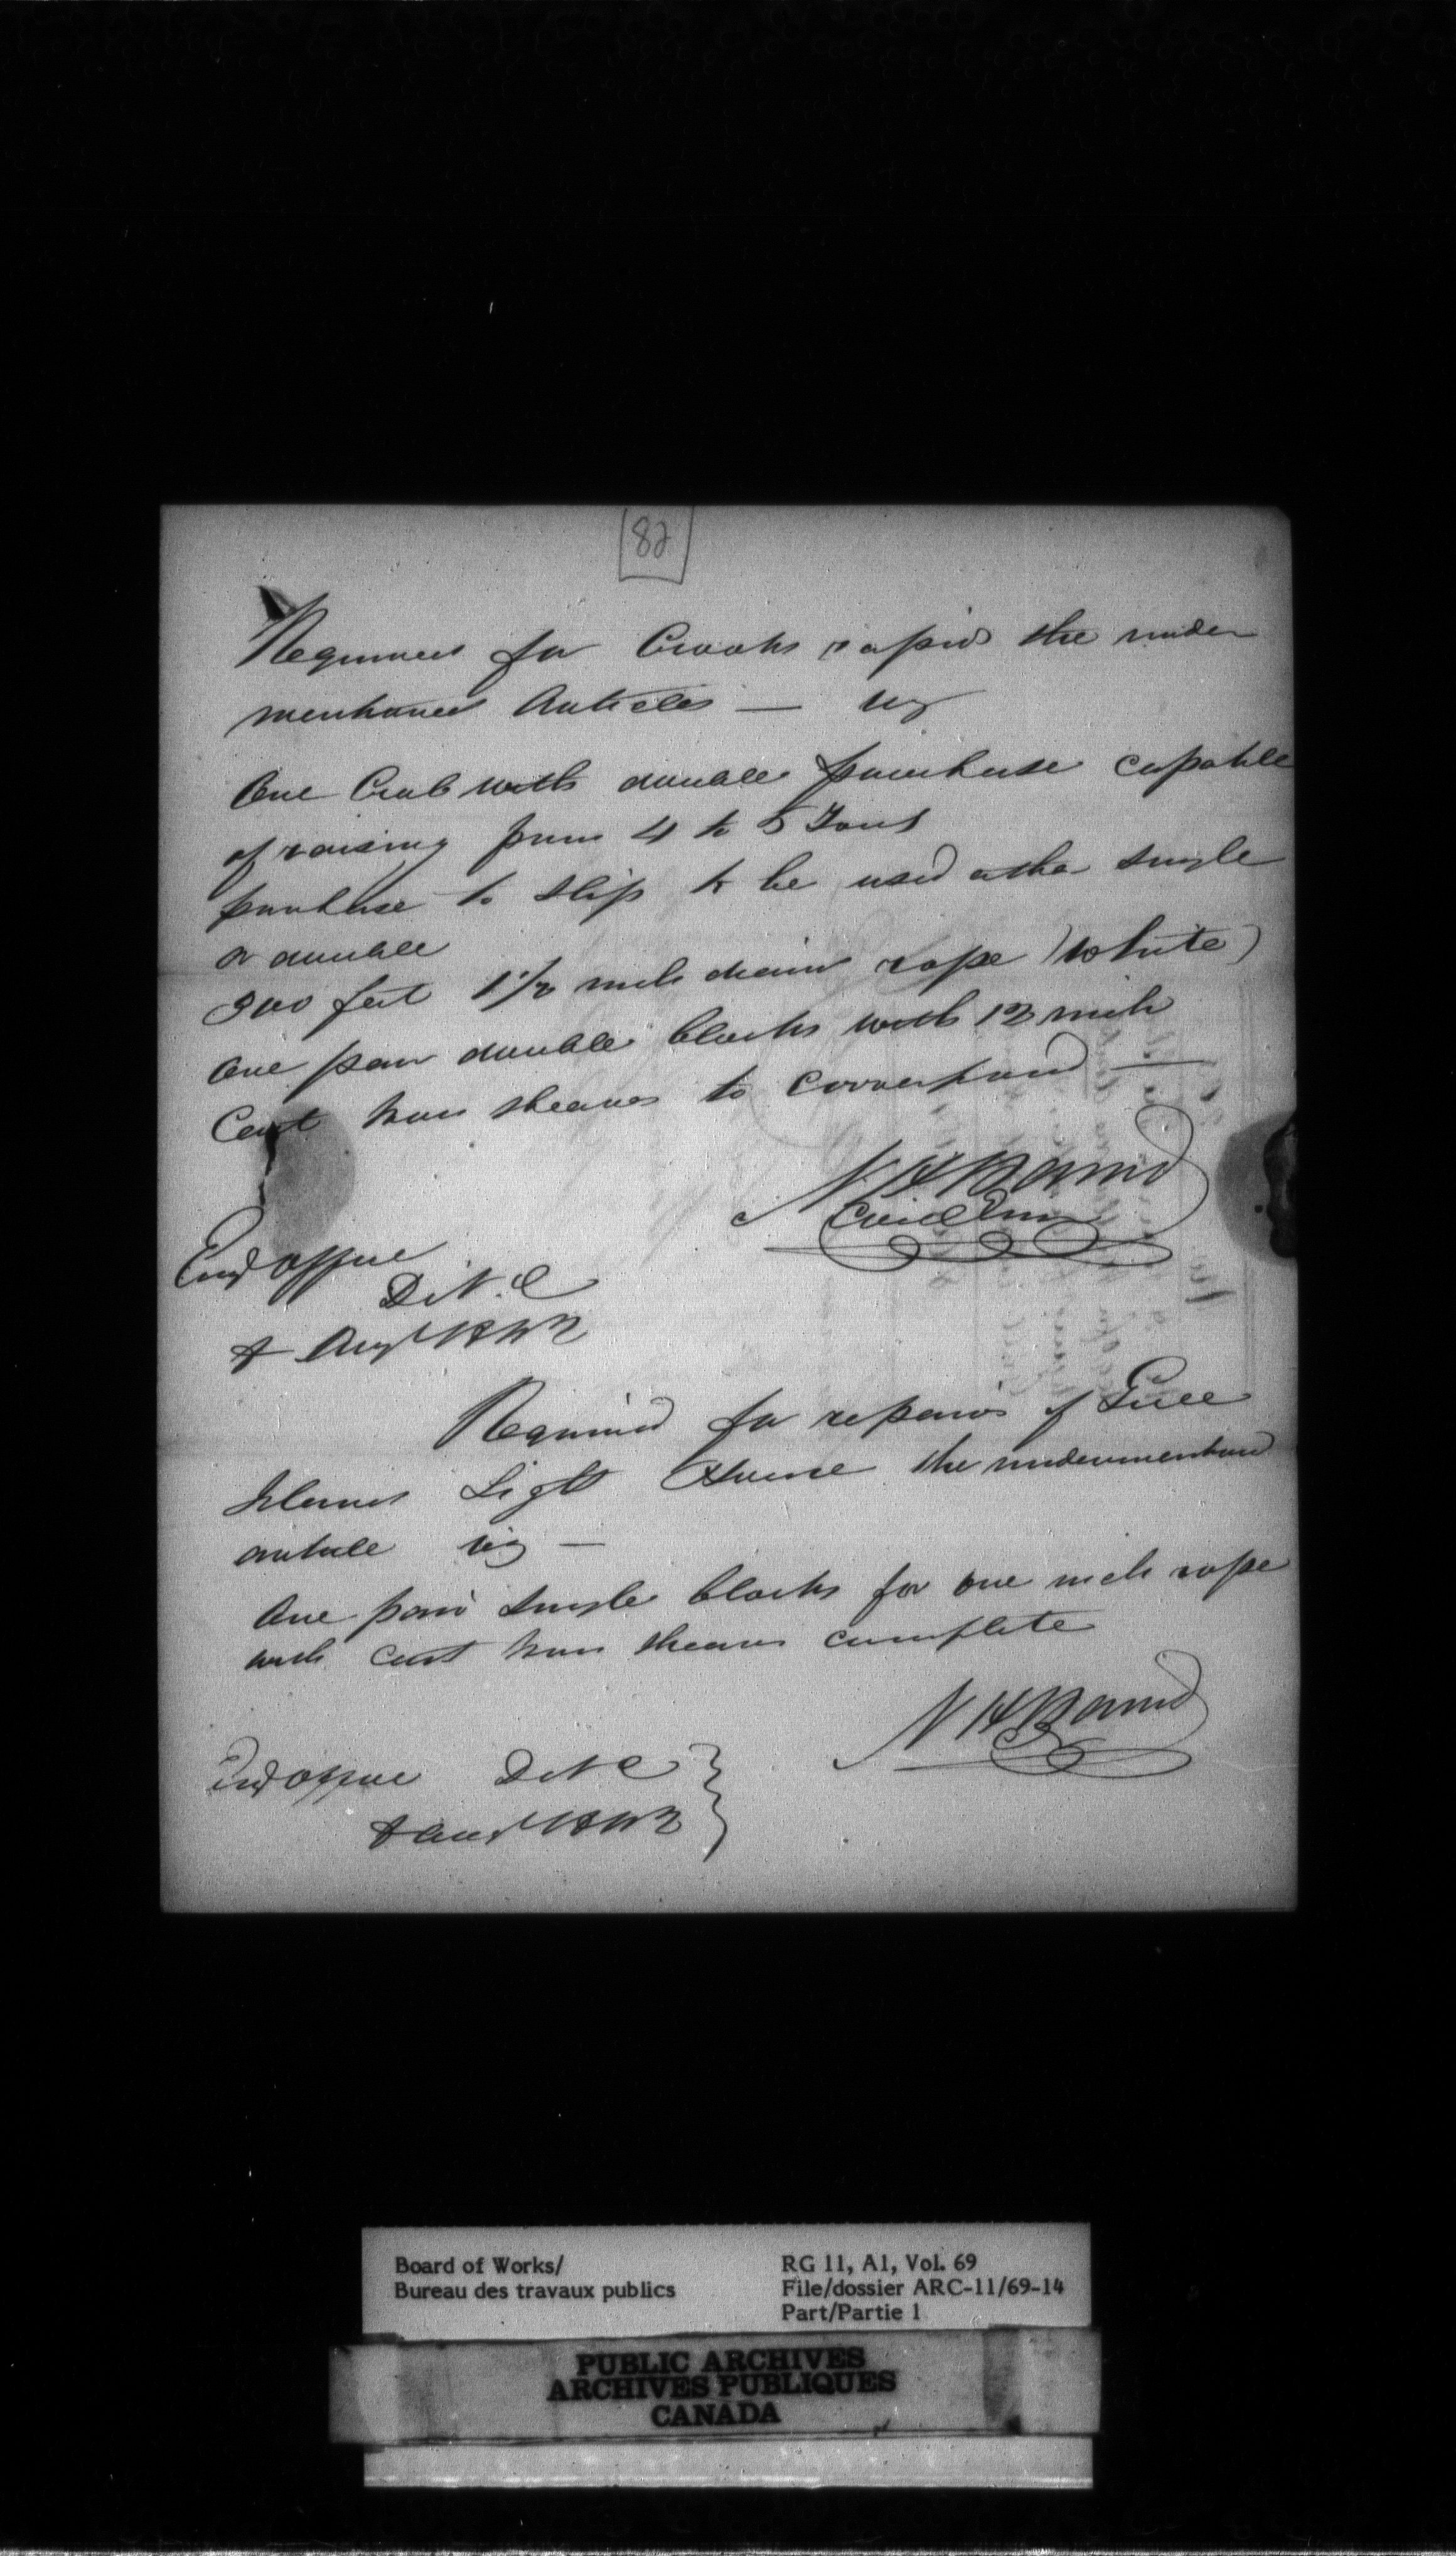 82
Required for Crooks rapids the under
mentioned Articles — viz
One Crab with double purchase capable
of raising from 4 to 5 Tons
purchase to slip to be used either single
or double
300 feet 1 1/2 inch rope (White)
One pair double blocks with 12 inch
Cast Iron sheaves to correspond —
N H Baird
Civil Eng
Eng Office
D. N. C
Augt 1842
Required for repairs of Gull
Island Light House the undermentiond
article viz —
One pair single blocks for one inch rope
with cast Iron sheaves complete
N H Baird
Eng Office D N C
Augt 1842
Board of Works/
Bureau des travaux publics
RG 11, A1, Vol. 69
File/dossier ARC-11/69-14
Part/Partie 1
PUBLIC ARCHIVES
ARCHIVES PUBLIQUES
CANADA